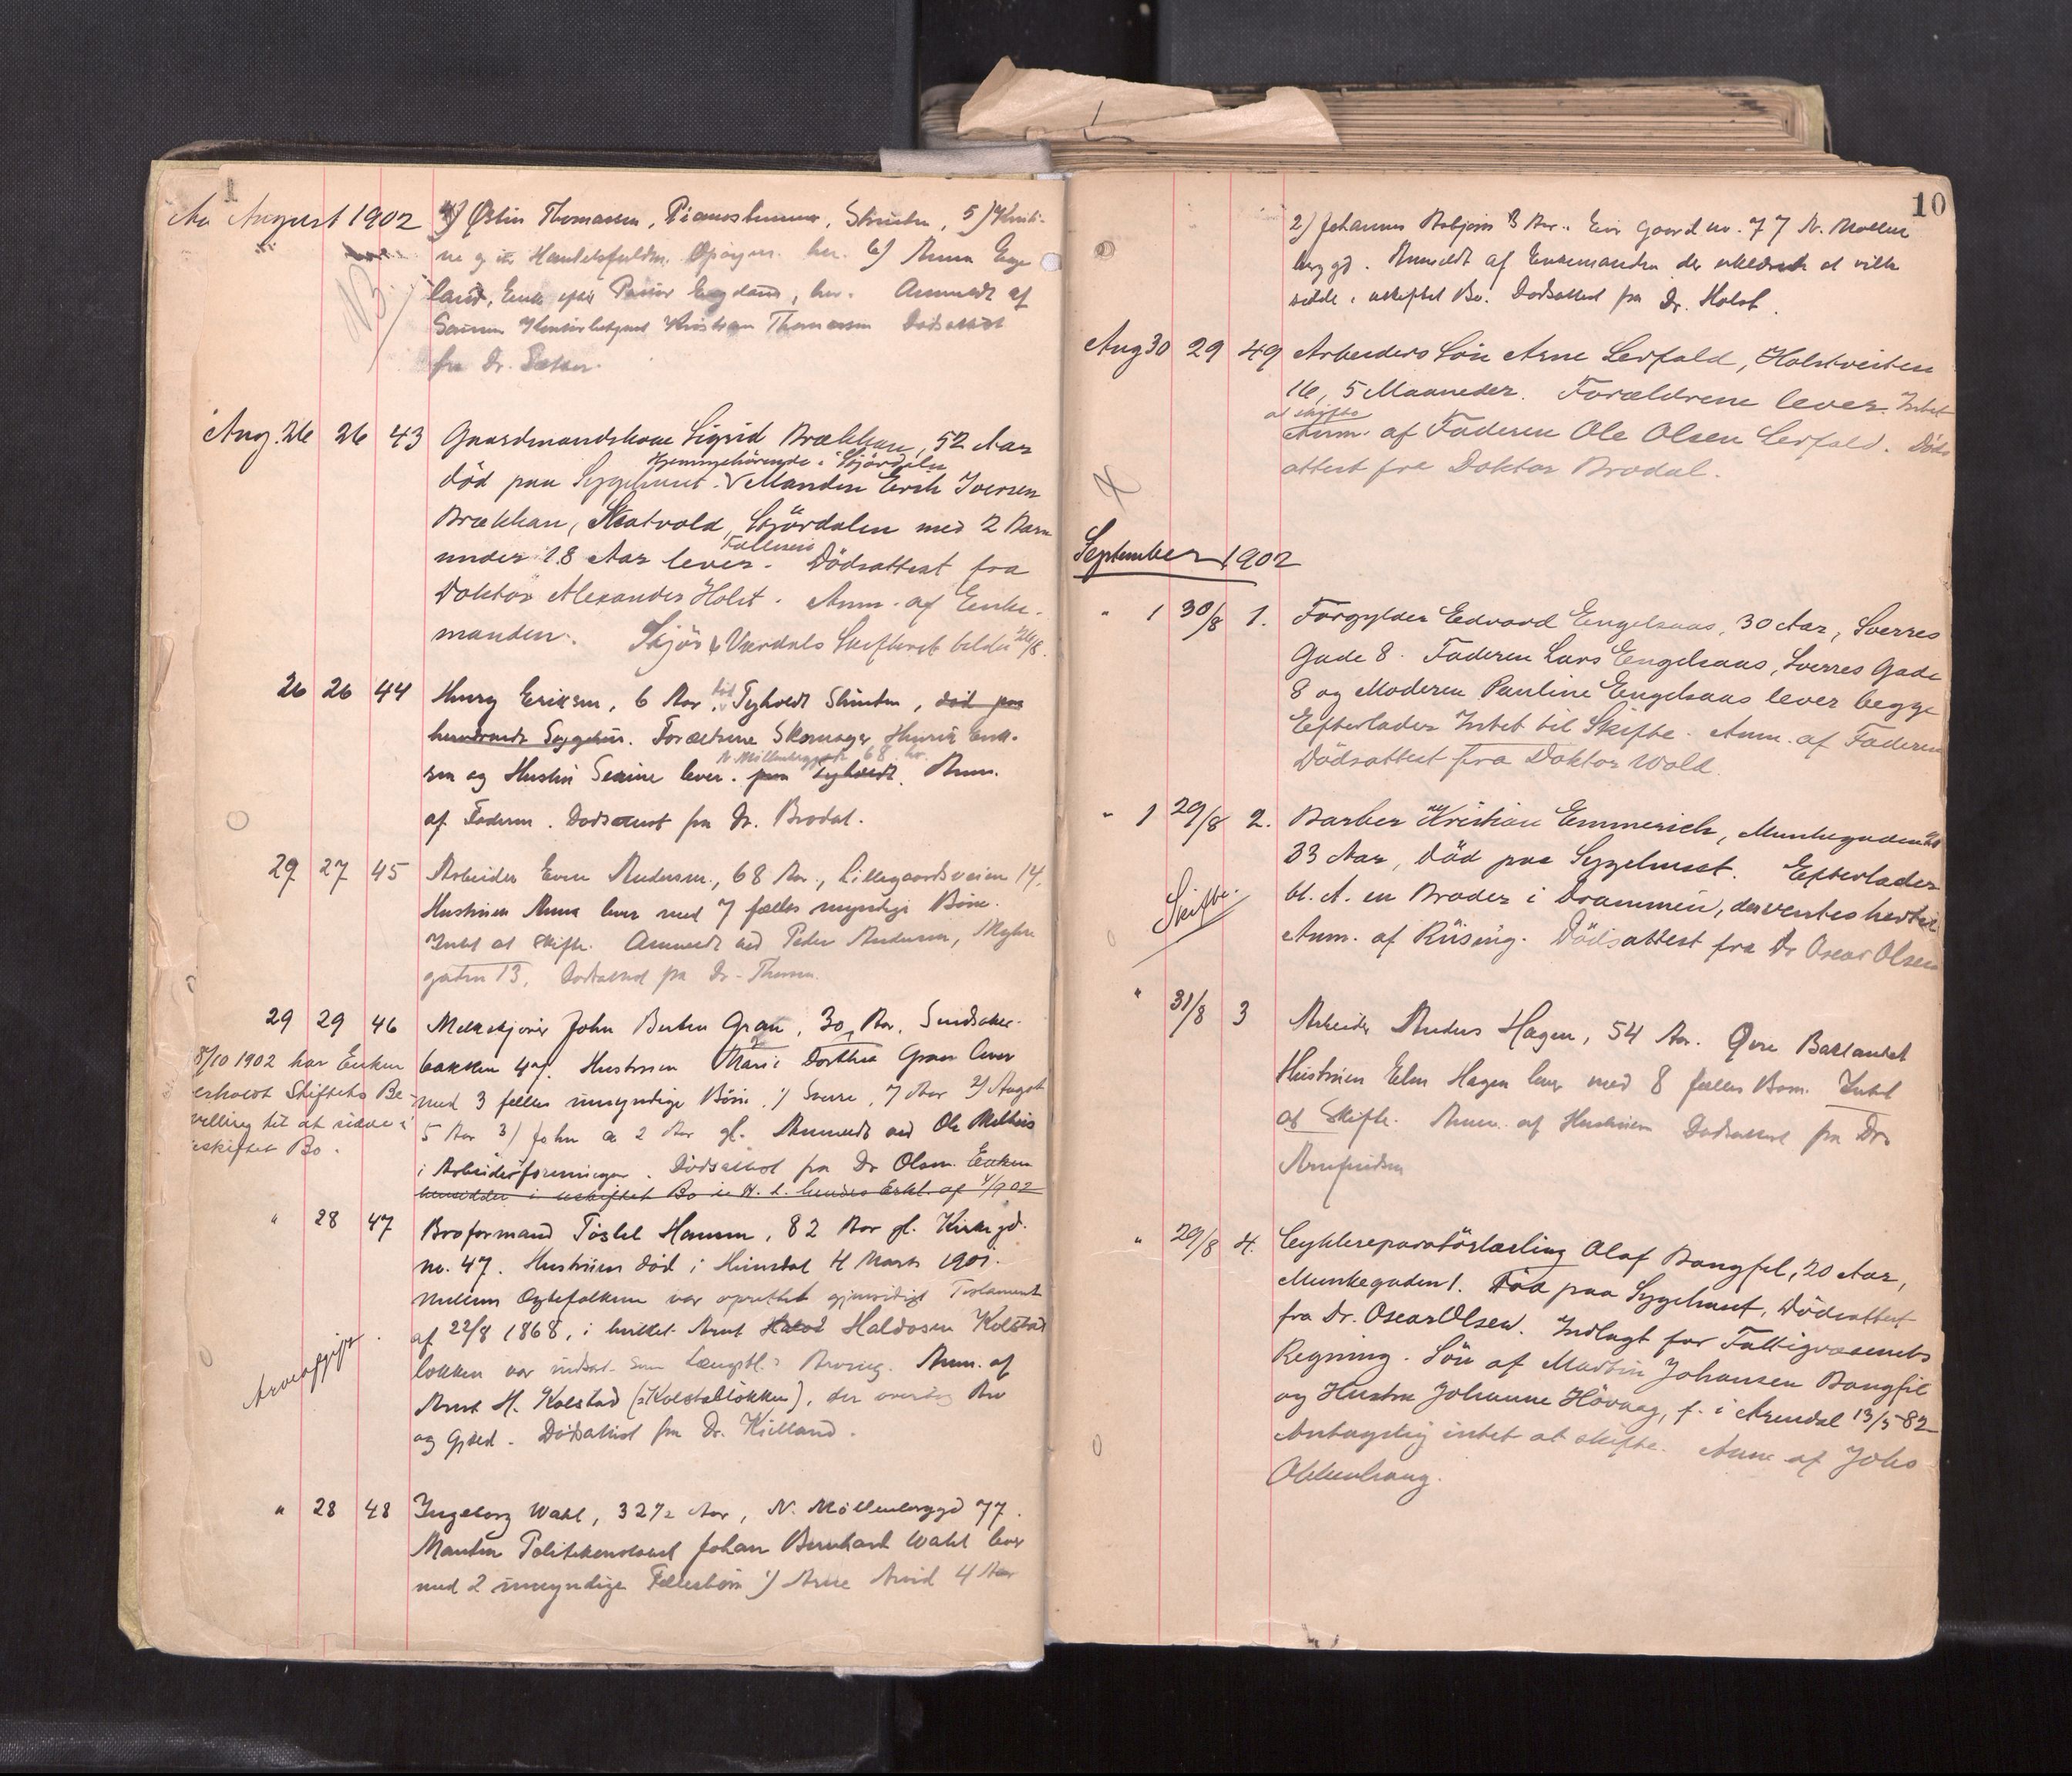 August 1902
4) Østen Thomassen, Pianostemmer, Strinden, 5)
6) Anna Enge
land, Enke efter England, her. Anmeldt af
Sønnen Kristian Thomassen Dødsattest
fra Dr.
NB.
Aug. 26 26 43 Gaardmandskone Sigrid Brækkan, 52 Aar
Hjemmehörende i Stjördalen
död paa Sygehuset. Manden Erik Iversen
Brækkan, Skatvold, Stjördalen med 2 Barn
Fælles
under 18 Aar lever. Dödsattest fra
Doktor Alexander Holst. Anm. af Enke-
manden. Stjör & Værdals Skifteret tilds. 26/8.
26 26 44 Henry Eriksen, 6 Aar, Tyholdt Strinden, död paa
Sygehus. Forældrene Skomager Henrik Erik-
N. Möllenberggade 68 her
sen og Hustru lever. paa Tyholdt. Anm.
af Faderen. Dødsattest fra Dr. Brodal.
29 27 45 Arbeider Even Andersen, 68 Aar, Lillegaardsveien 14.
Hustruen Anna lever med 7 fælles myndige Börn.
Intet at skifte. Anmeldt ved Peder Andersen,
gaden 13. Dødsattest fra Dr.
29 29 46 Melkekjörer John Gran, 30 Aar,
bakken 4a. Hustruen Marie Dorthea Gran lever
med 3 fælles umyndige Börn, 1) Sverre, 7 Aar 2) Aagot
5 Aar 3) John 2 Aar gl. Anmeldt ved Ole
i Arbeiderforeningen. Dödsattest fra Dr Olsen. Enken
hensidder i uskiftet Bo i H. t. hendes Erkl. af 4/9 02
8/10 1902 har Enken
erholdt Skiftets Be-
villing til at sidde i
uskiftet Bo.
" 28 47 Broformand Töstel Hansen, 82 Aar gl. Kirkegd.
no. 47. Hustruen död i Himdal 4 Marts 1901.
Mellem Ægtefolkene var oprettet gjensidigt Testament
af 22/8 1868, i hvilket Arnt Haldosen Kolstad
løkken var indsat som Længstl.s Arving. Anm. af
Arnt H. Kolstad (Kolstadløkken), der overtog Arv
og Gjæld. Dödsattest fra Dr. Kielland.
Arveafgift
" 28 48 Ingeborg Wahl, 32 1/2 Aar, N. Möllenberggd 77.
Manden Politikonstabel Johan Bernhard Wahl lever
med 2 umyndige Fællesbörn 1) Arne Arvid 4 Aar
10
2) Johannes 3 Aar. Eier Gaard no. 77 N. Mollen
berggd. Anmeldt af Enkemanden der erklærede at ville
sidde i uskiftet Bo. Dødsattest fra Dr. Holst.
Aug 30 29 49 Arbeiders Sön Arne Leifald, Holstveiten
16, 5 Maaneder. Forældrene lever. Intet
at skifte
Anm. af Faderen Ole Olsen Leifald. Döds
attest fra Doktor Brodal.
September 1902
" 1 30/8 1. Forgylder Edvard Engelsaas, 30 Aar, Sverres
Gade 8. Faderen Lars Engelsaas, Sverres Gade
8 og Moderen Pauline Engelsaas lever begge
Efterlader Intet til Skifte. Anm. af Faderen
Dödsattest fra Doktor Wold.
" 1 29/8 2. Barber Kristian Emmerich, Munkegaden 20
33 Aar, död paa Sygehuset. Efterlader
bl. A. en Broder i Drammen, der ventes hertil
Anm. af Riising. Dödsattest fra Dr Oscar Olsen
Skifte.
" 31/8 3 Arbeider Anders Hagen, 54 Aar. Övre Baklandet
Hustruen Elen Hagen lever med 8 fælles Barn. Intet
at Skifte. Anm. af Hustruen Dödsattest fra Dr.
Arnfindsen
" 29/8 4. Cyklereparatörlærling Olaf Bangfil, 20 Aar,
Munkegaden 1. Död paa Sygehuset, Dödsattest
fra Dr. Oscar Olsen. Indlagt for Fattigvæsenets
Regning. Sön af Martin Johansen Bangfil
og Hustru Johanne Hövaag, f. i Arendal 13/5 82
Antagelig intet at skifte. Anm af Johs